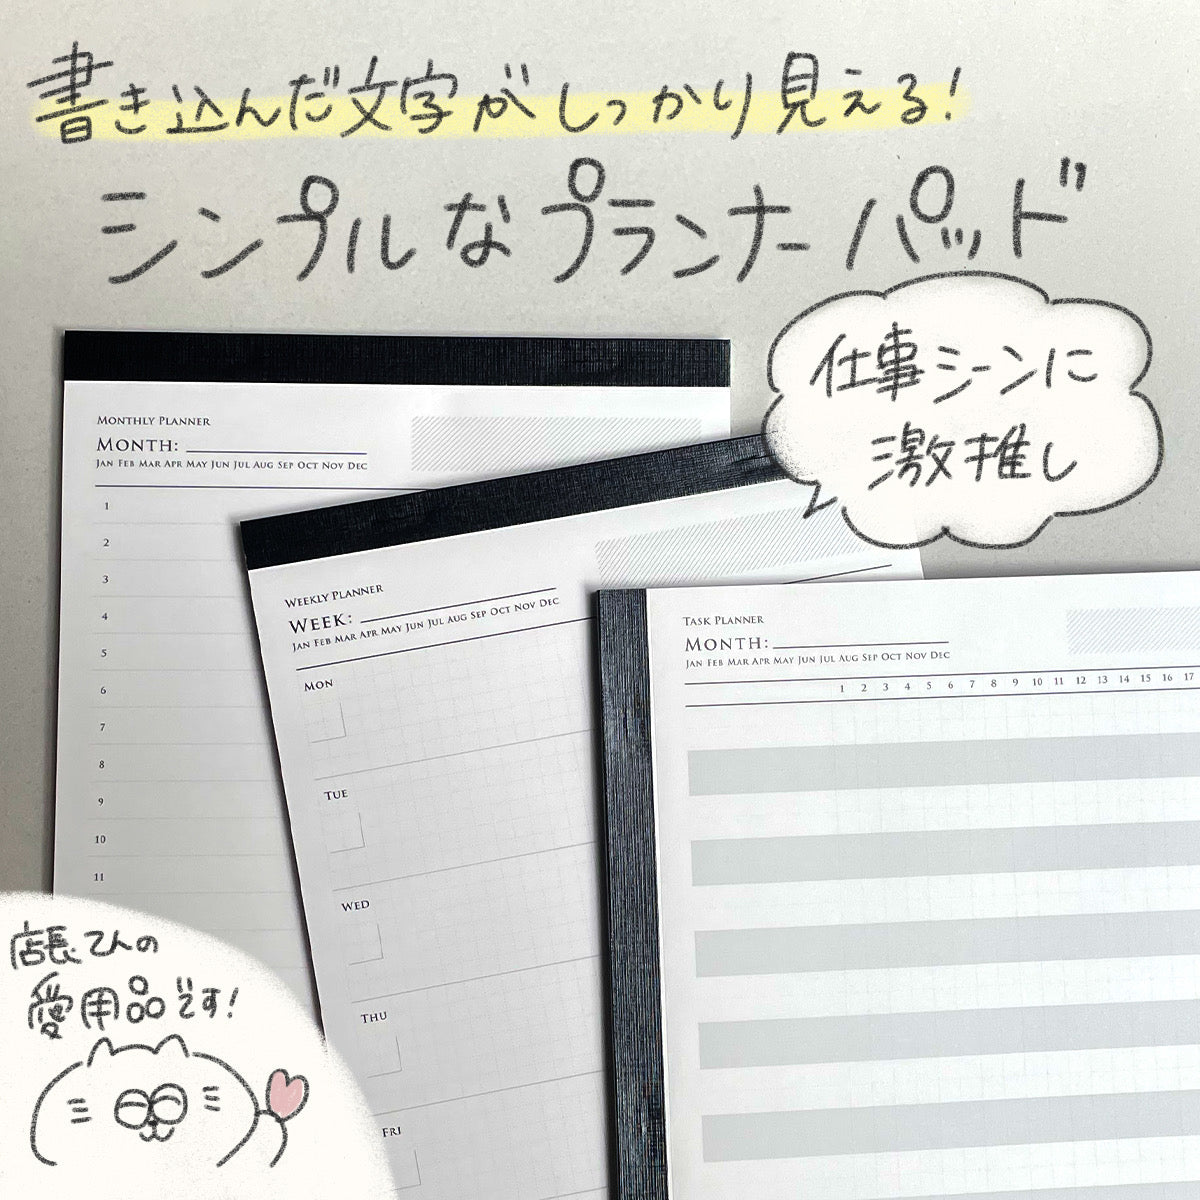 書き込んだ文字がしっかり見える!
シンプルなプランナーパッド
仕事シーンに
激推し
MONTHLY PLANNER
MONTH:
JAN FEB MAR APR MAY JUN JUL AUG SEP OCT NOV DEC
1
2
3
4
5
6
7
8
9
10
11
WEEKLY PLANNER
WEEK:
JAN FEB MAR APR MAY JUN JUL AUG SEP OCT NOV DEC
MON
TUE
WED
THU
FRI
TASK PLANNER
MONTH:
JAN FEB MAR APR MAY JUN JUL AUG SEP OCT NOV DEC
1 2 3 4 5 6 7 8 9 10 11 12 13 14 15 16 17
店長てんの
愛用品です!